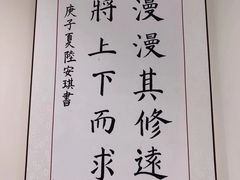 漫漫其修遠
將上下而求
庚子夏陸安琪書